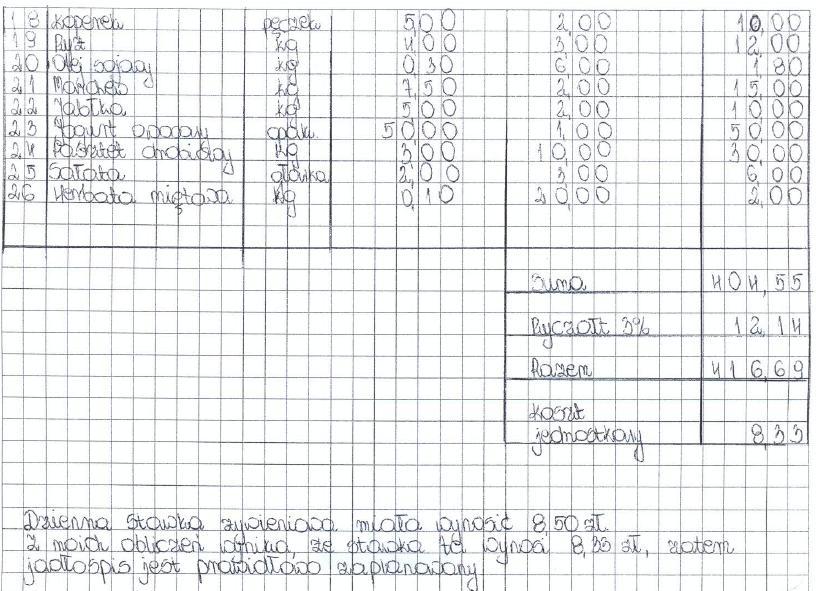 18 Koperek pęczek 5,00 2,00 10,00
19 Ryż kg 4,00 3,00 12,00
20 Olej sojowy kg 0,30 6,00 1,80
21 Marchew kg 7,50 2,00 15,00
22 Jabłka kg 5,00 2,00 10,00
23 Jogurt owocowy opak. 50,00 1,00 50,00
24 Pasztet drobiowy kg 3,00 10,00 30,00
25 Sałata główka 2,00 3,00 6,00
26 Herbata miętowa kg 0,10 20,00 2,00
Suma 404,55
Ryczałt 3% 12,14
Razem 416,69
Koszt
jednostkowy 8,33
Dzienna stawka żywieniowa miała wynosić 8,50 zł.
Z moich obliczeń wynika, że stawka ta wynosi 8,33 zł, zatem
jadłospis jest prawidłowo zaplanowany